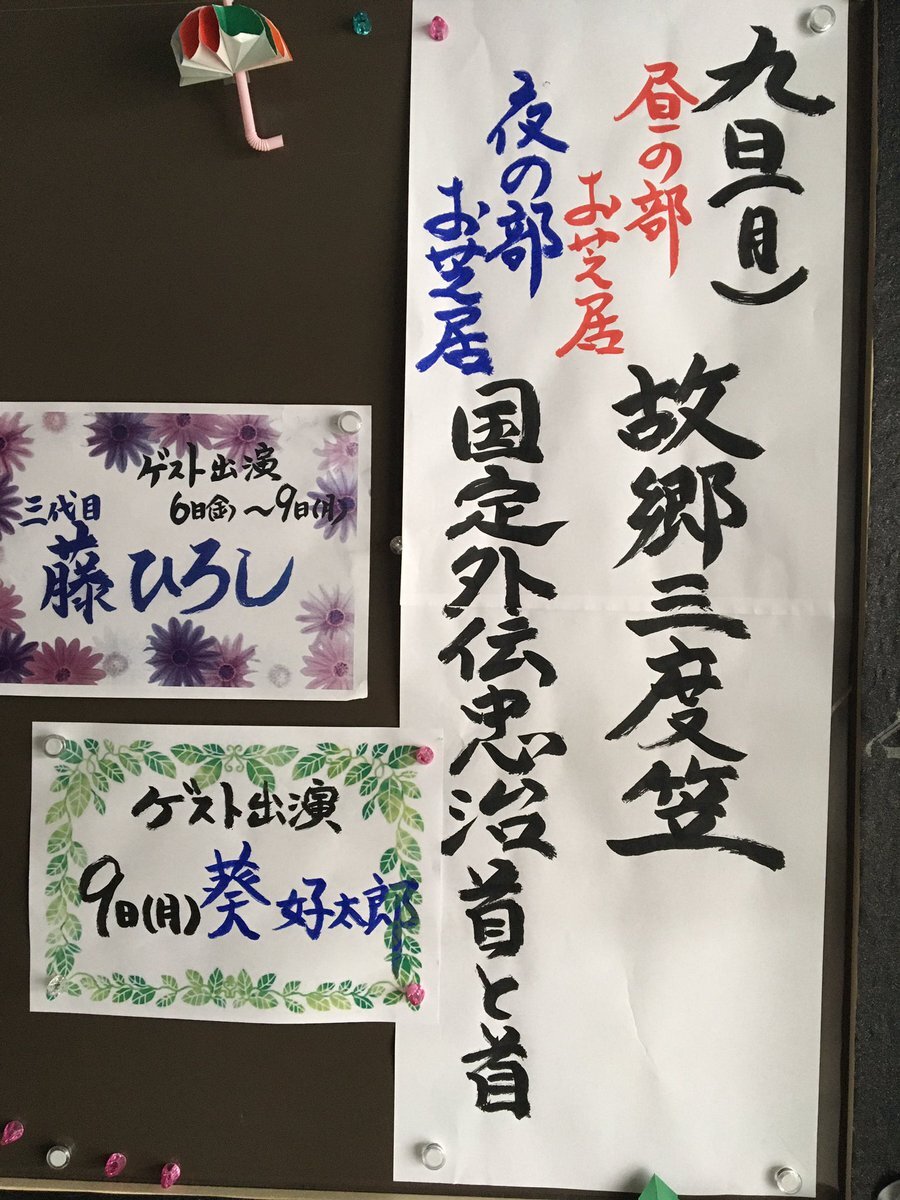 九日(月)
昼の部
お芝居
故郷三度笠
夜の部
お芝居
国定外伝忠治首と首
ゲスト出演
6日(金)〜9日(月)
三代目
藤ひろし
ゲスト出演
9日(月)葵好太郎